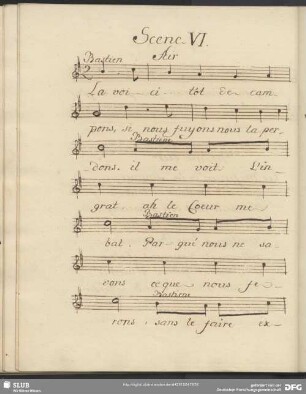 Scene VI.
Bastien Air
La voi ci tôt de cam
pons, si nous fuyons nous la per
Bastiene
dons. il me voit L'in
grat. ah le Coeur me
Bastien
bat, Par qui nous ne sa
vons ce que nous fe
Bastiene
rons, sans le faire ex
SLUB
Wir führen Wissen.
Deutsche Forschungsgemeinschaft
DFG